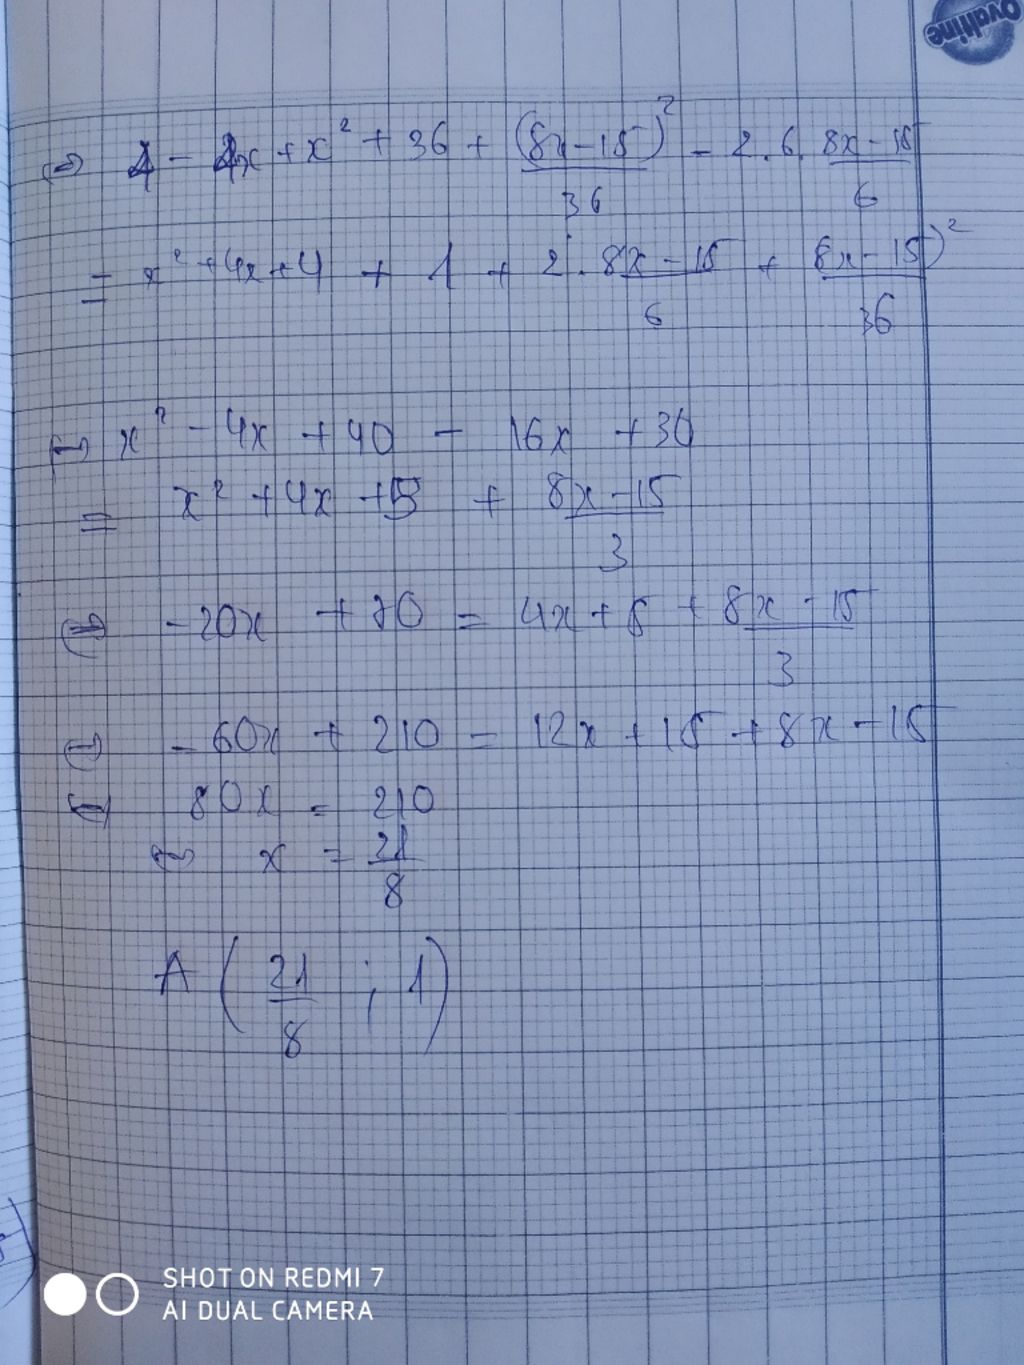 Ovaltine
⇔ 4 - 4x + x² + 36 + (8x-15)²/36 - 2.6. 8x-15/6
= x² + 4x + 4 + 1 + 2. 8x-15/6 + 8x-15)²/36
⇔ x² - 4x + 40 - 16x + 30
= x² + 4x + 5 + 8x-15/3
⇔ -20x + 70 = 4x + 5 + 8x-15/3
⇔ -60x + 210 = 12x + 15 + 8x - 15
⇔ 80x = 210
⇔ x = 21/8
A ( 21/8 ; 1 )
SHOT ON REDMI 7
AI DUAL CAMERA